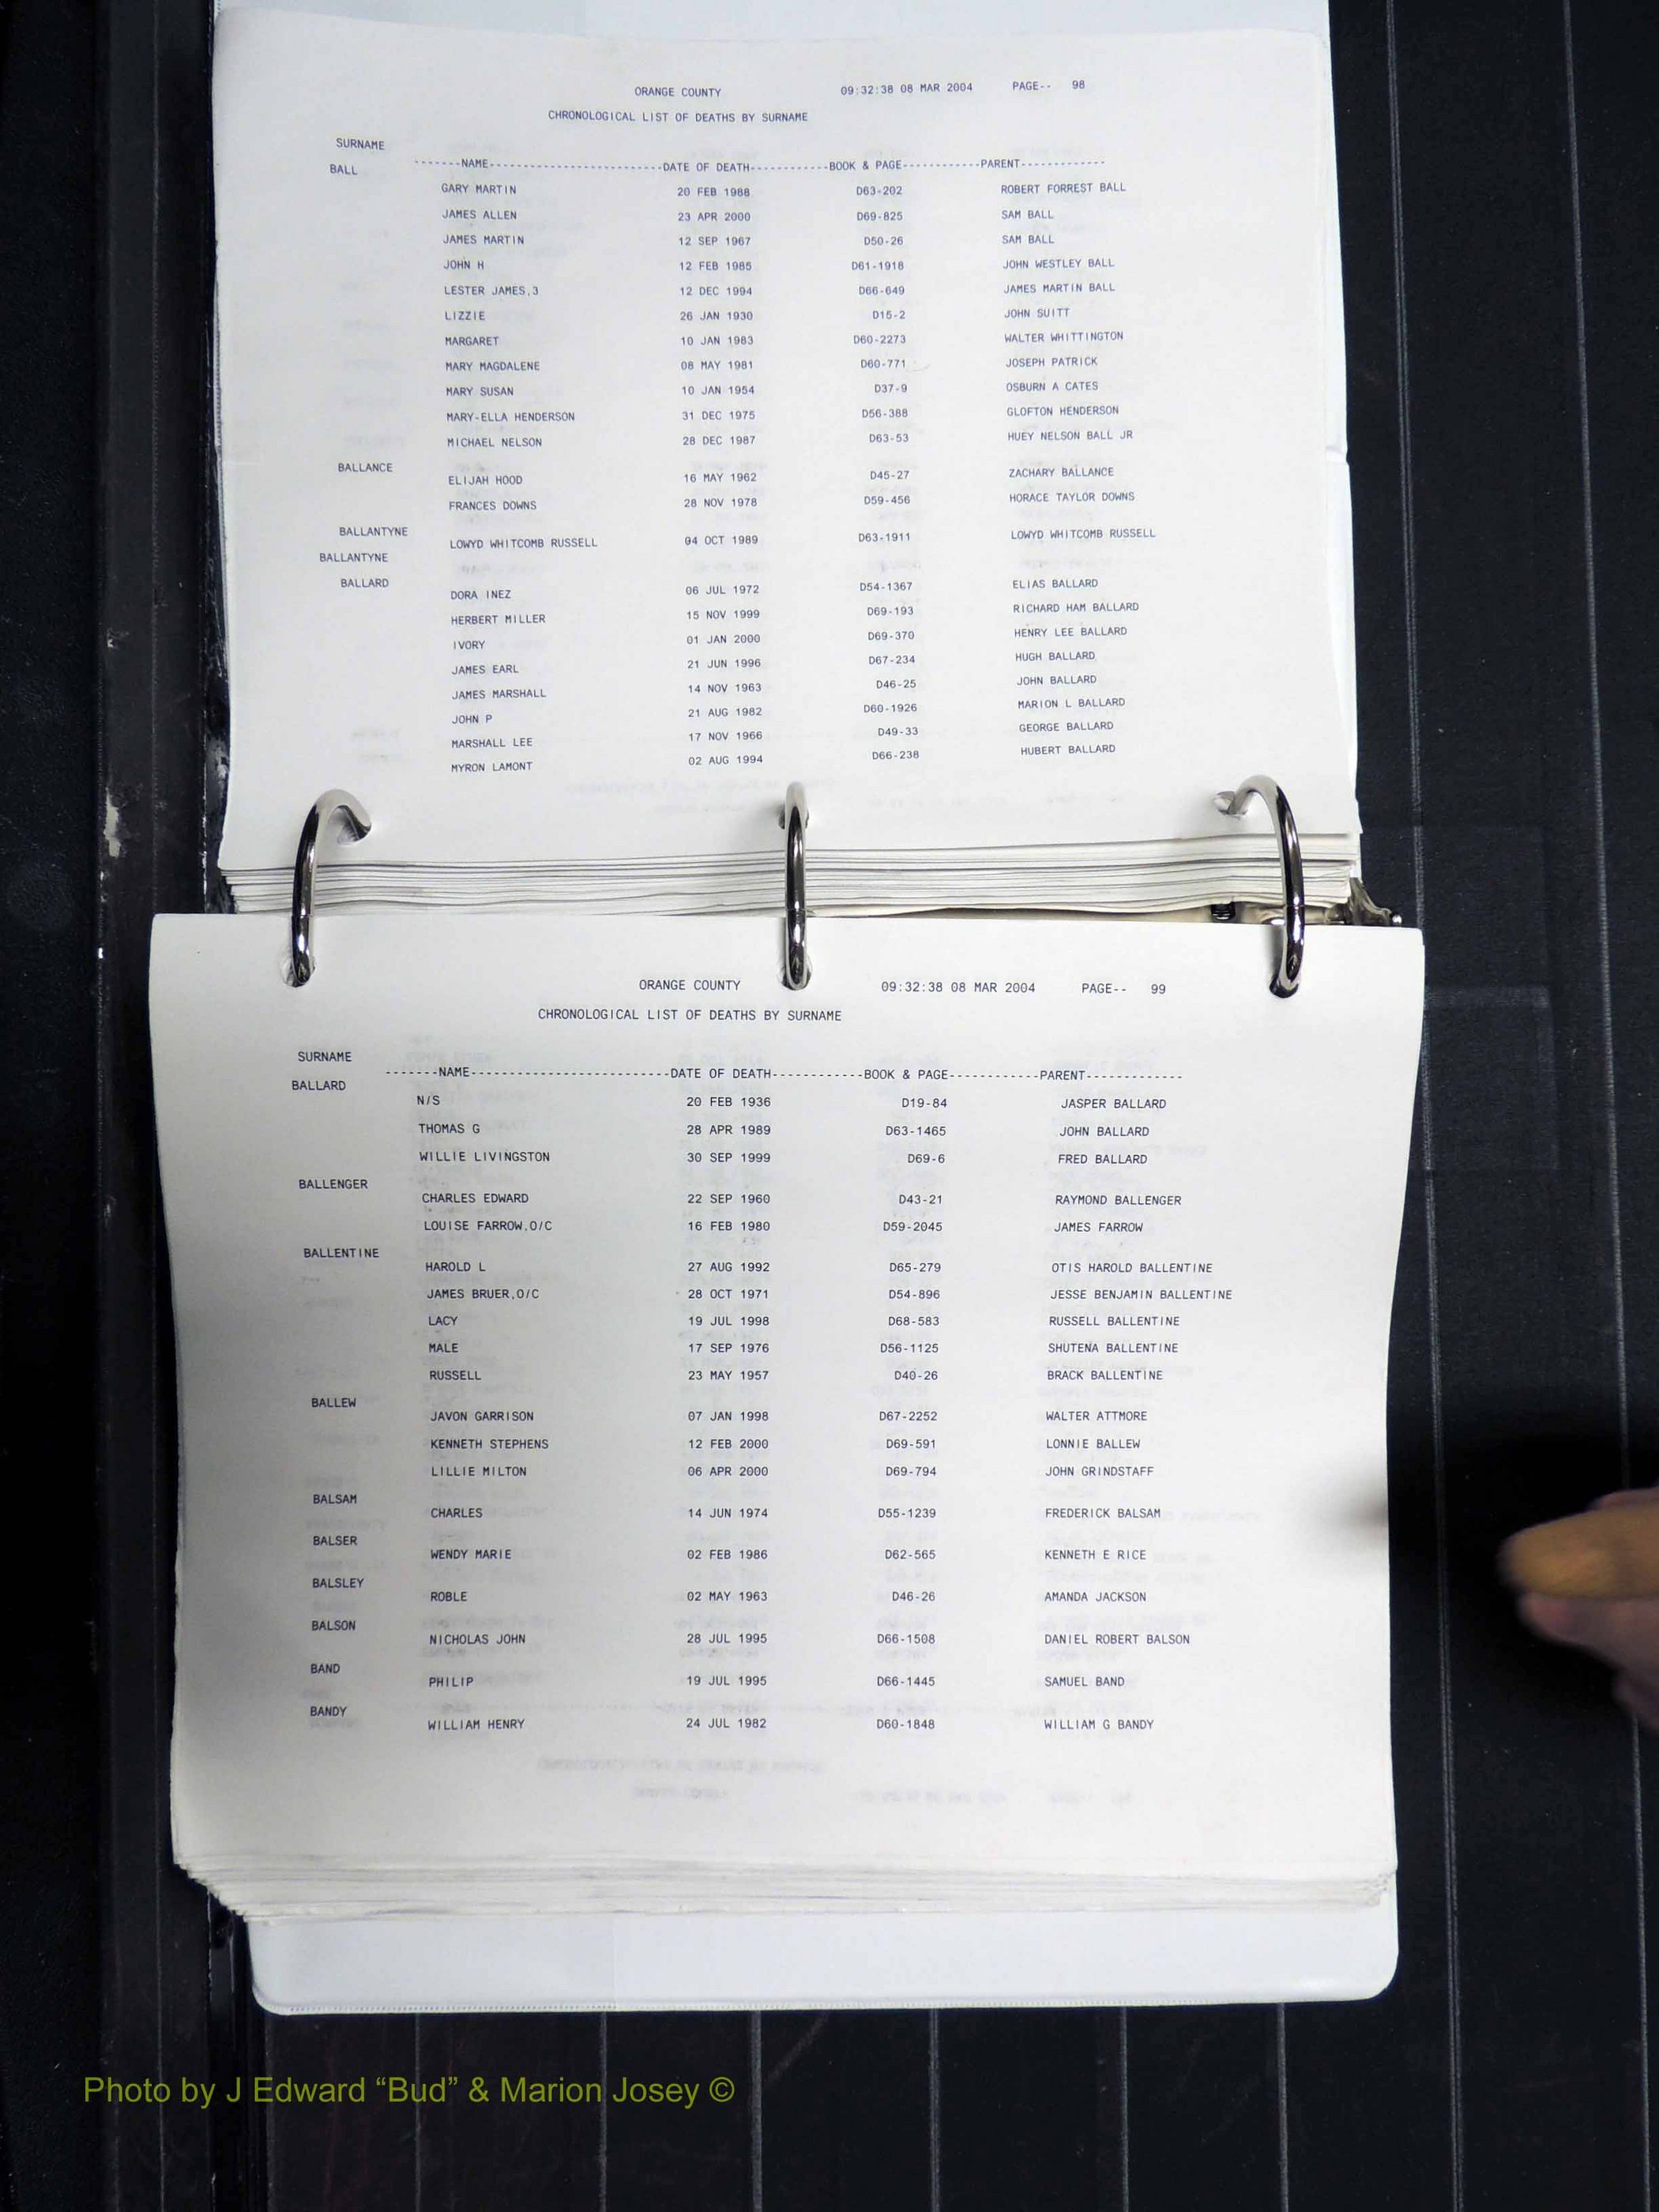 ORANGE COUNTY 09:32:38 08 MAR 2004 PAGE-- 98
CHRONOLOGICAL LIST OF DEATHS BY SURNAME
SURNAME
-------NAME--------------------------DATE OF DEATH------------BOOK & PAGE------------PARENT-------------
BALL
GARY MARTIN 20 FEB 1988 D63-202 ROBERT FORREST BALL
JAMES ALLEN 23 APR 2000 D69-825 SAM BALL
JAMES MARTIN 12 SEP 1967 D50-26 SAM BALL
JOHN H 12 FEB 1985 D61-1918 JOHN WESTLEY BALL
LESTER JAMES,3 12 DEC 1994 D66-649 JAMES MARTIN BALL
LIZZIE 26 JAN 1930 D15-2 JOHN SUITT
MARGARET 10 JAN 1983 D60-2273 WALTER WHITTINGTON
MARY MAGDALENE 08 MAY 1981 D60-771 JOSEPH PATRICK
MARY SUSAN 10 JAN 1954 D37-9 OSBURN A CATES
MARY-ELLA HENDERSON 31 DEC 1975 D56-388 GLOFTON HENDERSON
MICHAEL NELSON 28 DEC 1987 D63-53 HUEY NELSON BALL JR
BALLANCE
ELIJAH HOOD 16 MAY 1962 D45-27 ZACHARY BALLANCE
FRANCES DOWNS 28 NOV 1978 D59-456 HORACE TAYLOR DOWNS
BALLANTYNE
LOWYD WHITCOMB RUSSELL 04 OCT 1989 D63-1911 LOWYD WHITCOMB RUSSELL
BALLANTYNE
BALLARD
DORA INEZ 06 JUL 1972 D54-1367 ELIAS BALLARD
HERBERT MILLER 15 NOV 1999 D69-193 RICHARD HAM BALLARD
IVORY 01 JAN 2000 D69-370 HENRY LEE BALLARD
JAMES EARL 21 JUN 1996 D67-234 HUGH BALLARD
JAMES MARSHALL 14 NOV 1963 D46-25 JOHN BALLARD
JOHN P 21 AUG 1982 D60-1926 MARION L BALLARD
MARSHALL LEE 17 NOV 1966 D49-33 GEORGE BALLARD
MYRON LAMONT 02 AUG 1994 D66-238 HUBERT BALLARD
ORANGE COUNTY 09:32:38 08 MAR 2004 PAGE-- 99
CHRONOLOGICAL LIST OF DEATHS BY SURNAME
SURNAME
-------NAME--------------------------DATE OF DEATH------------BOOK & PAGE------------PARENT-------------
BALLARD
N/S 20 FEB 1936 D19-84 JASPER BALLARD
THOMAS G 28 APR 1989 D63-1465 JOHN BALLARD
WILLIE LIVINGSTON 30 SEP 1999 D69-6 FRED BALLARD
BALLENGER
CHARLES EDWARD 22 SEP 1960 D43-21 RAYMOND BALLENGER
LOUISE FARROW,O/C 16 FEB 1980 D59-2045 JAMES FARROW
BALLENTINE
HAROLD L 27 AUG 1992 D65-279 OTIS HAROLD BALLENTINE
JAMES BRUER,O/C 28 OCT 1971 D54-896 JESSE BENJAMIN BALLENTINE
LACY 19 JUL 1998 D68-583 RUSSELL BALLENTINE
MALE 17 SEP 1976 D56-1125 SHUTENA BALLENTINE
RUSSELL 23 MAY 1957 D40-26 BRACK BALLENTINE
BALLEW
JAVON GARRISON 07 JAN 1998 D67-2252 WALTER ATTMORE
KENNETH STEPHENS 12 FEB 2000 D69-591 LONNIE BALLEW
LILLIE MILTON 06 APR 2000 D69-794 JOHN GRINDSTAFF
BALSAM
CHARLES 14 JUN 1974 D55-1239 FREDERICK BALSAM
BALSER
WENDY MARIE 02 FEB 1986 D62-565 KENNETH E RICE
BALSLEY
ROBLE 02 MAY 1963 D46-26 AMANDA JACKSON
BALSON
NICHOLAS JOHN 28 JUL 1995 D66-1508 DANIEL ROBERT BALSON
BAND
PHILIP 19 JUL 1995 D66-1445 SAMUEL BAND
BANDY
WILLIAM HENRY 24 JUL 1982 D60-1848 WILLIAM G BANDY
Photo by J Edward “Bud” & Marion Josey ©